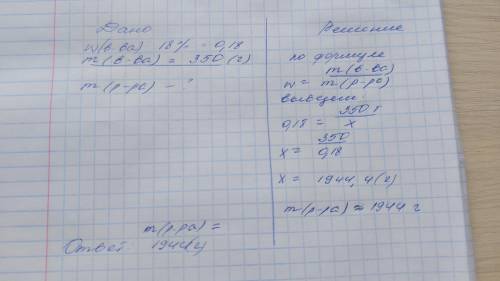 Дано
w(в-ва) 18% - 0,18
m(в-ва) = 350 (г)
m(р-ра) - ?
m(р.ра) =
Ответ 1944(г)
Решение
по формуле
w = m(в-ва)
m(р-ра)
выведем:
0,18 = 350 г
x
x = 350
0,18
x = 1944,4(г)
m(р-ра) ≈ 1944 г